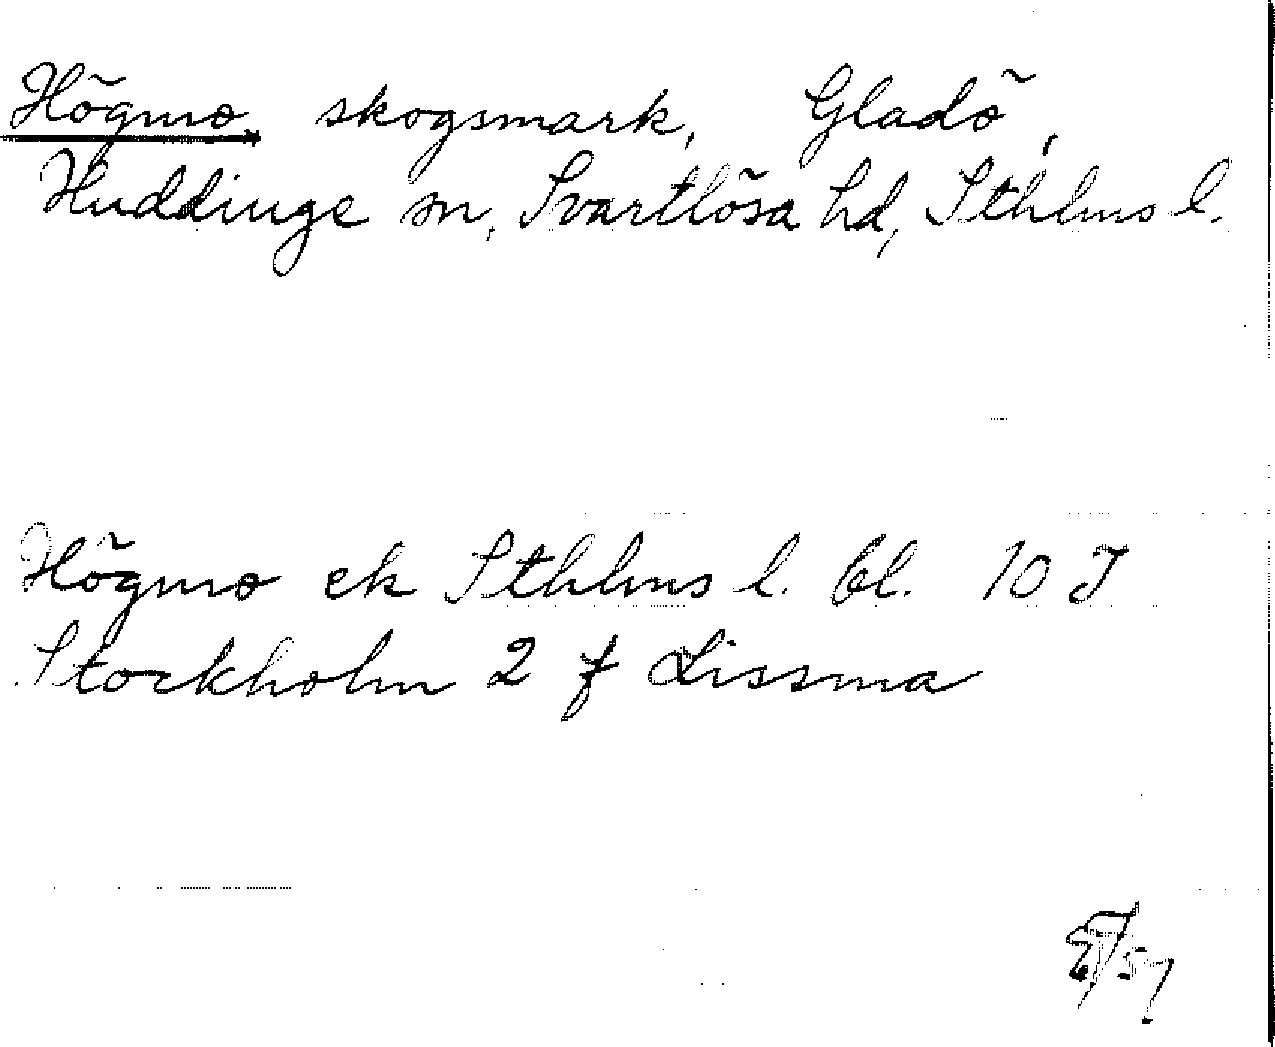 Högmo skogsmark, Gladö,
Huddinge sn, Svartlösa hd, Sthlms l.
Högmo ek Sthlms l. bl. 10 J
Stockholm 2 f Lissma